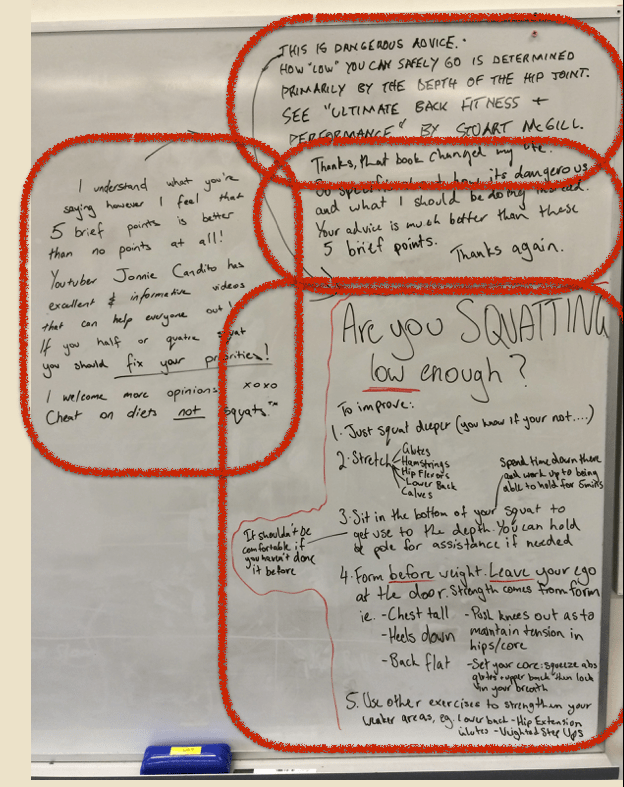 THIS IS DANGEROUS ADVICE.
HOW "LOW" YOU CAN SAFELY GO IS DETERMINED
PRIMARILY BY THE DEPTH OF THE HIP JOINT.
SEE "ULTIMATE BACK FITNESS +
PERFORMANCE" BY STUART McGILL.
Thanks, that book changed my life.
So specific about how its dangerous
and what I should be doing instead.
Your advice is much better than these
5 brief points. Thanks again.
I understand what you're
saying however I feel that
5 brief points is better
than no points at all!
Youtuber Jonnie Candito has
excellent & informative videos
that can help everyone out!
If you half or quatre squat
you should fix your priorities!
I welcome more opinions xoxo
Cheat on diets not squats.™
Are you SQUATTING
low enough?
To improve:
1. Just squat deeper (you know if your not....)
2. Stretch
Glutes
Hamstrings
Hip Flexors
Lower Back
Calves
Spend time down there
and work up to being
able to hold for 5mins
3. Sit in the bottom of your squat to
get use to the depth. You can hold
a pole for assistance if needed
It shouldn't be
comfortable if
you haven't done
it before
4. Form before weight. Leave your ego
at the door. Strength comes from form
ie. -Chest tall
-Heels down
-Back flat
-Push knees out as to
maintain tension in
hips/core
-Set your core: squeeze abs
glutes + upper back then lock
in your breath
5. Use other exercises to strengthen your
weaker areas, eg. Lower back - Hip Extension
Glutes - Weighted Step Ups